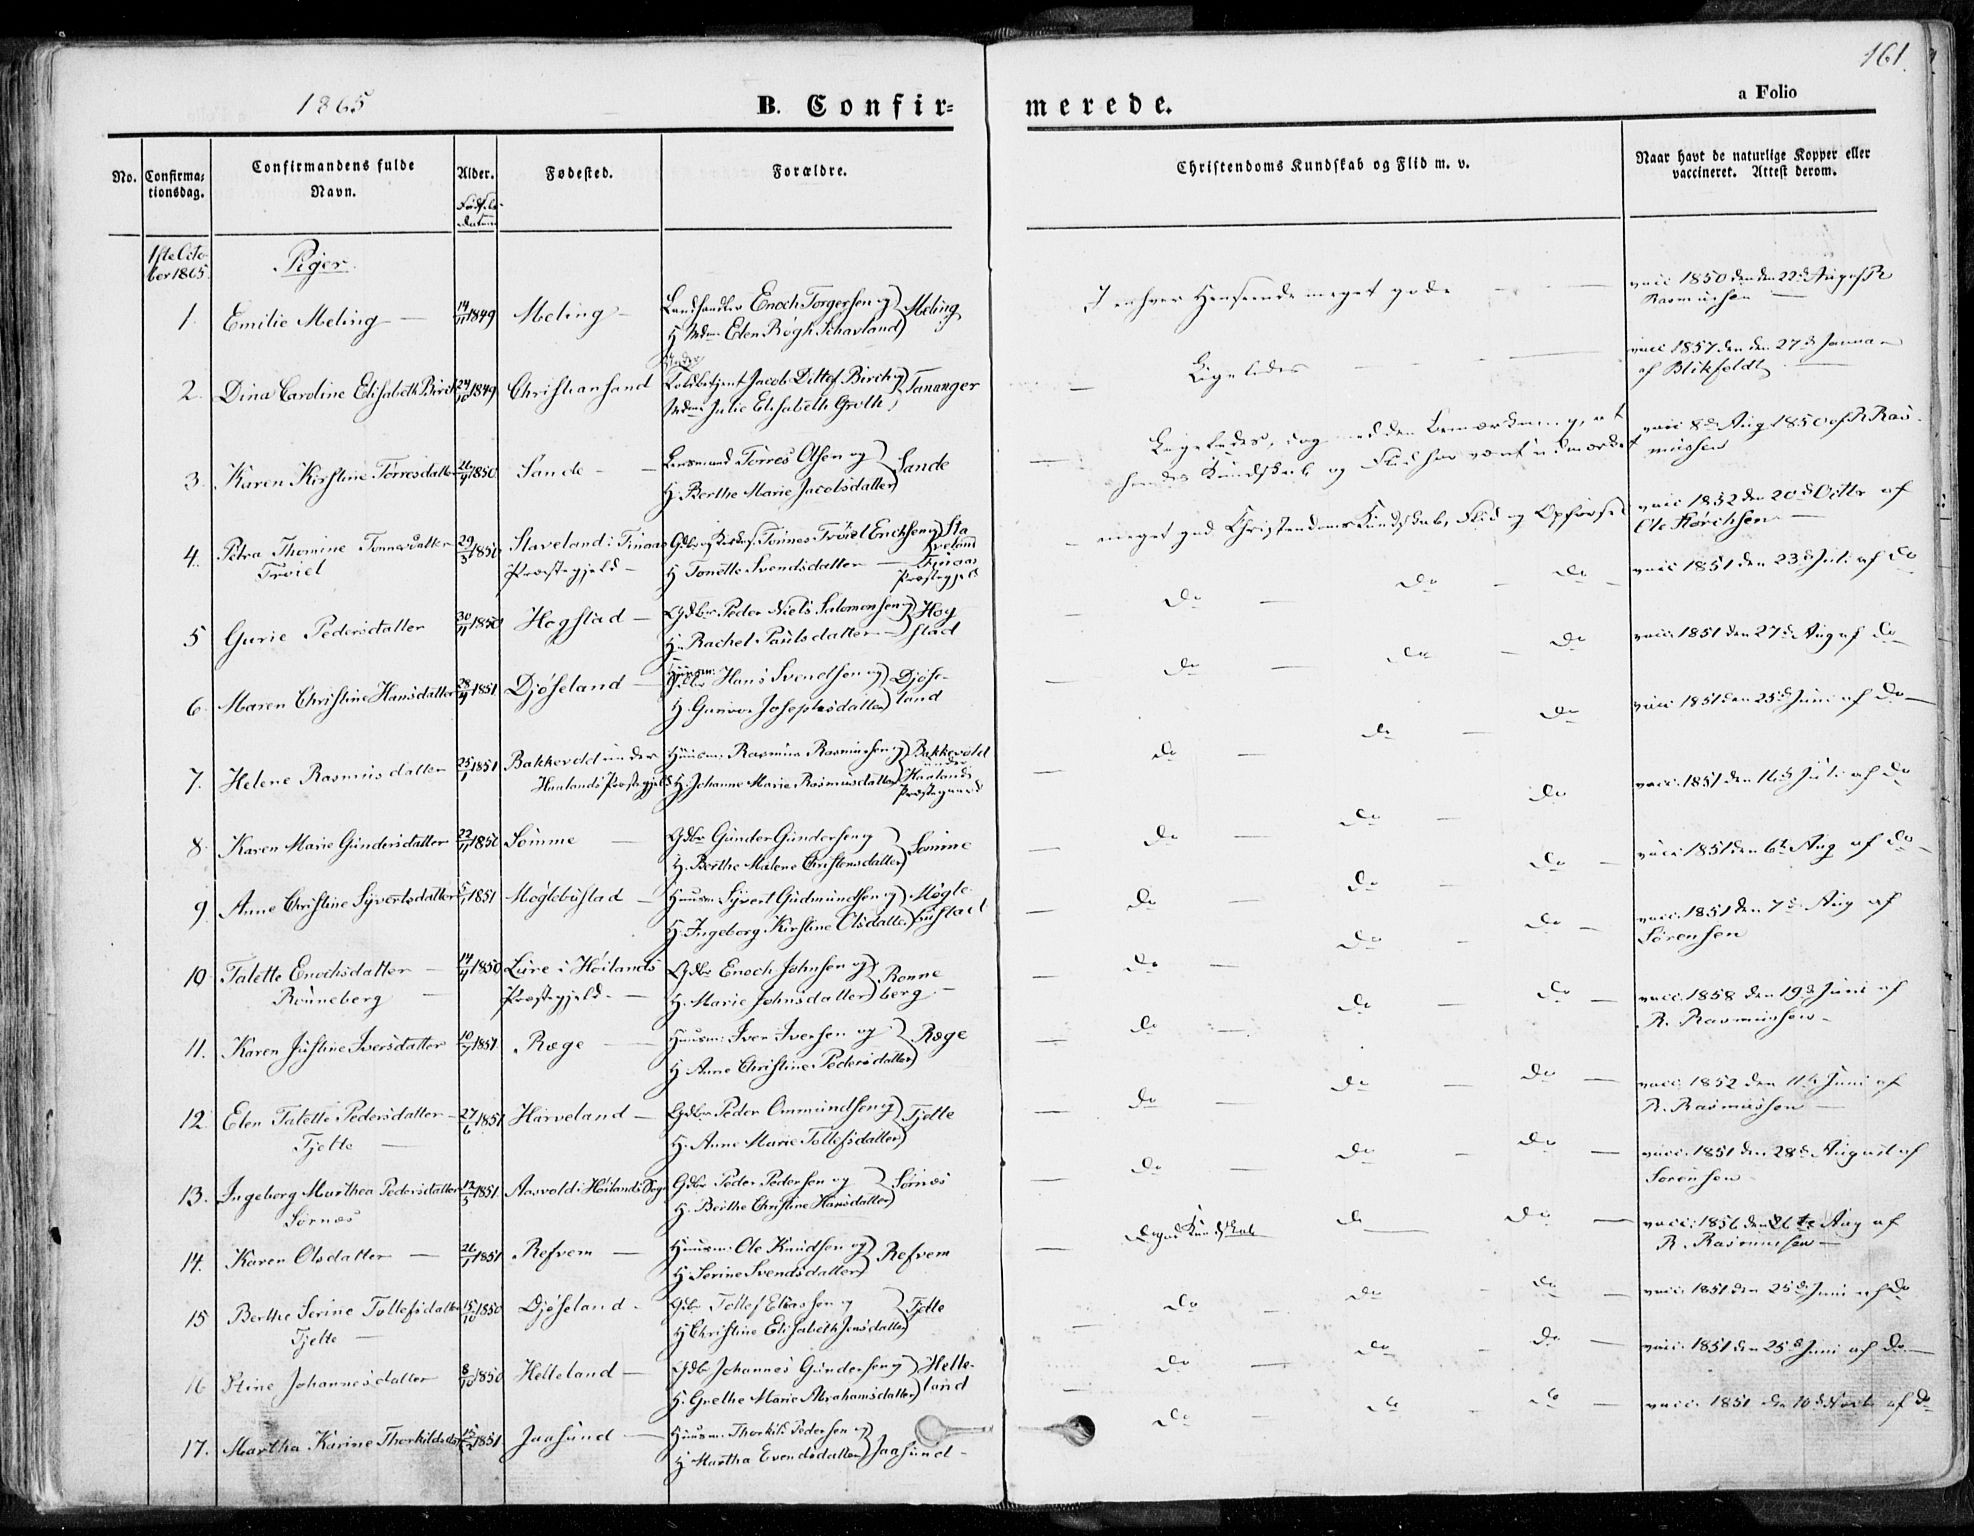 161.
1865
B. Confir=
merede.
a Folio
No.
Confirma=
tionsdag.
Confirmandens fulde
Navn.
Alder.
Fødsels-
datum
Fødested.
Forældre.
Christendoms Kundskab og Flid m. v.
Naar havt de naturlige Kopper eller
vaccineret. Attest derom.
1ste Octo-
ber 1865.
Piger.
1. Emilie Meling — 14/11 1849 Meling — Landhandler Enoch Torgersen og
H. Mdm. Elen Røgh Schavland) Meling
I enhver Henseende meget gode — vacc 1850 den 22d Aug af R
Rasmussen —
2. Dina Caroline Elisabeth Birch 24/10 1849 Christiansand Toldbetjent Jacob Ditlef Birch og
Mdm. Julie Elisabeth Groth) Tananger
Ligeledes — vacc 1857 den 27d Janua
af Blikfeldt —
3. Karen Kirstine Tørresdatter 26/9 1850 Sande — Lensmand Tørres Olsen og
H. Berthe Marie Jacobsdatter) Sande
Ligeledes, dog med den Bemærkning, at
hendes Kundskab og Flid har været udmærket
vacc 8d Aug 1850 af R Ras-
mussen
4. Petra Thomine Tonnesdatter 29/3 1850 Staveland i Finaas
Troiel Præstegjeld —
Tönnes Troiel Erichsen og
H. Tonette Svendsdatter — Finaas
Præstegjeld
meget god Christendoms Kundskab, Flid og Opførsel
vacc 1852 den 20d Octbr af
Ole Hørchsen —
5 Gurie Pedersdatter 30/11 1850 Hogstad — Gdbr. Peder Niels Salomonsen og
H. Rachel Paulsdatter — Hog
stad
Do — Do — Do vacc 1851 den 23d Juli af Do
6. Maren Christine Hansdatter 28/4 1851 Djøseland — Huusm. Hans Svendsen og
H. Gunvor Josephsdatter) Djøse-
land
Do — Do — Do vacc. 1851 den 27d Aug af Do
7. Helene Rasmusdatter 25/1 1851 Bakkevold under
Haalands Præstegjeld
Huusm. Rasmus Rasmussen og
H. Johanne Marie Rasmusdatter
Bakkevold
under
Haalands
Præstegaard
Do — Do — Do vacc 1851 den 25d Juni af Do —
8. Karen Marie Gundersdatter 22/11 1850 Sømme — Gdbr Gunder Gundersen og
H. Berthe Malene Christensdatter) Sømme
Do — Do — Do vacc. 1851 den 16d Juli af Do
9. Anne Christine Syvertsdatter 5/1 1851 Møglebustad — Huusm Syvert Gudmundsen og
H. Ingeborg Kirstine Olsdatter) Møgle-
bustad
Do — Do — Do — vacc. 1851 den 6te Aug af Do
10. Talette Enochsdatter — 14/11 1850 Lure i Høilands
Rönneberg — Præstegjeld. —
Gdbr Enoch Johnsen og
H. Marie Johnsdatter) Rønne
berg. —
Do — Do — Do — vacc. 1851 den 7d Aug af
Sørensen
11. Karen Justine Iversdatter 10/7 1851 Ræge — Huusm. Iver Iversen og
H. Anne Christine Pedersdatter) Ræge
Do — Do — Do — vacc. 1858 den 19d Juni af
R. Rasmussen —
12. Elen Talette Pedersdatter — 27/6 1851 Harveland —
Tjelte —
Gdbr Peder Ommundsen og
H. Anne Marie Tollefsdatter) Tjelte
Do — Do — Do — vacc. 1852 den 11te Juni af
R. Rasmussen —
13. Ingeborg Marthea Pedersdatter 12/3 1851 Aasvold i Høilands Sogn
Sørnes
Gdbr Peder Pedersen og
H. Berthe Christine Hansdatter) Sørnes
Do — Do — Do — vacc. 1851 den 28d August af
Sørensen —
14. Karen Olsdatter — 26/1 1851 Refvem — Huusm. Ole Knudsen og
H. Serine Svendsdatter) Refvem
Do god Kundskab Do — Do — vacc. 1856 den 26te Aug af
R. Rasmussen —
15 Berthe Serine Tollefsdatter 15/10 1850 Djøseland —
Tjelte —
Gdbr Tollef Eliassen og
H Christine Elisabeth Jensdatter) Tjelte
Do — Do — Do vacc. 1851 den 25d Juni af Do
16 Stine Johannesdatter 8/10 1850 Helleland — Gdbr Johannes Gundersen og
H. Grethe Marie Abrahamsdatter) Helle-
land
Do — Do — Do — vacc. 1851 den 25d Juni af Do —
17. Martha Karine Thorkildsdatter 1851 Jaasund — Huusm. Thorkild Pedersen og
H Martha Evendsdatter) Jaasund —
Do — Do — Do — vacc. 1851 den 10d af Do